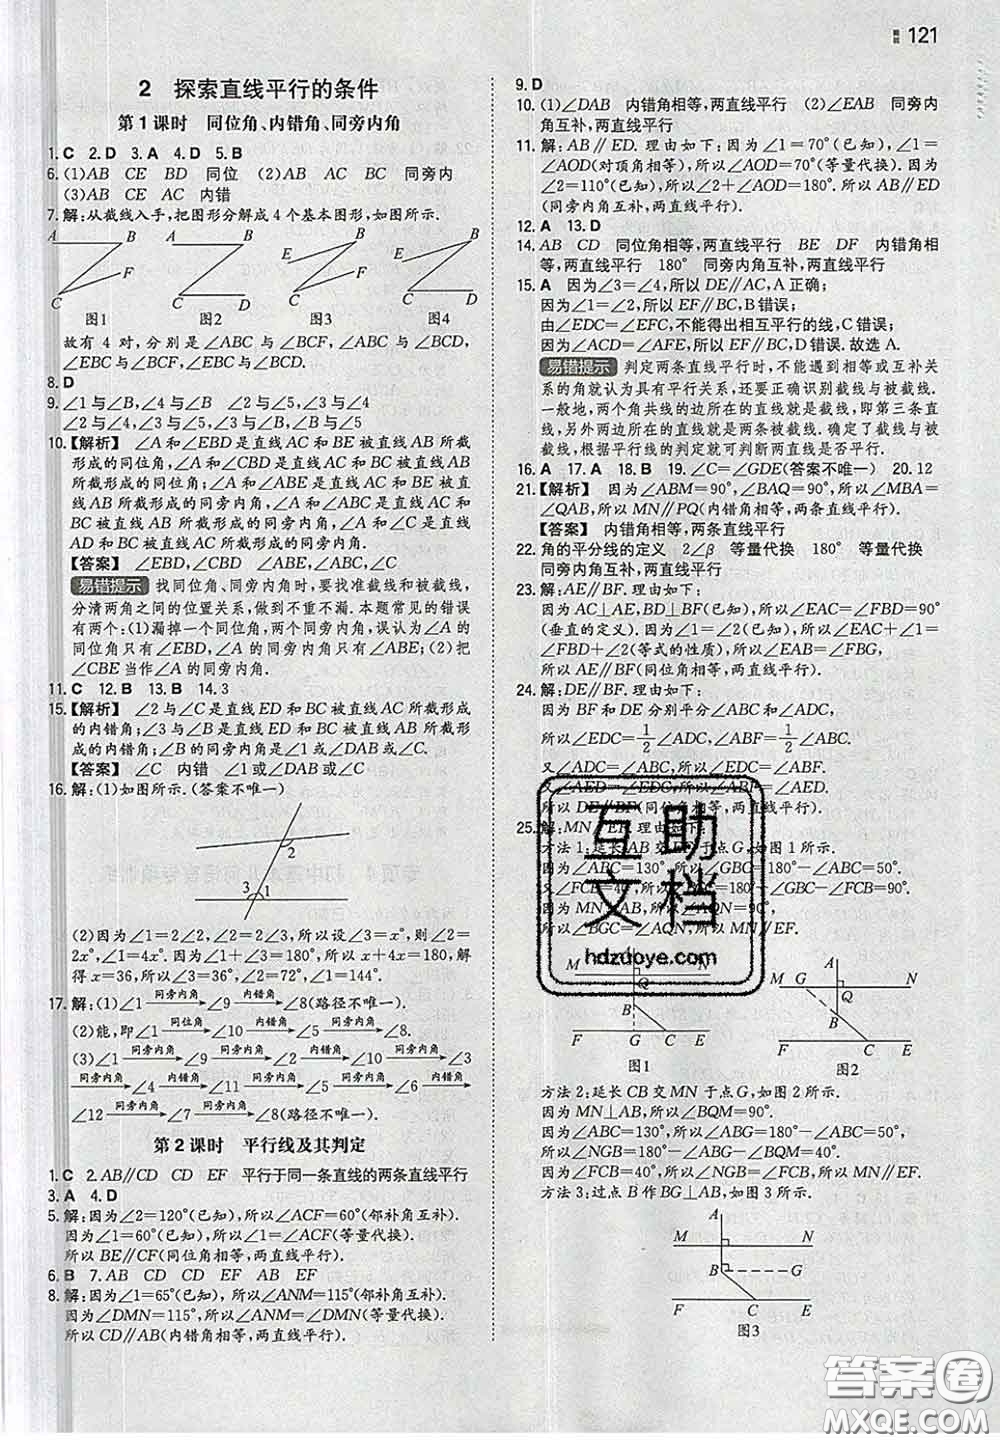 121
2 探索直线平行的条件
第1课时 同位角、内错角、同旁内角
1.C 2.D 3.A 4.D 5.B
6.(1)AB CE BD 同位 (2)AB AC BC 同旁内
(3)AB CE AC 内错
7.解:从截线入手,把图形分解成4个基本图形,如图所示.
A B C F 图1
A B C 图2
E B F C 图3
E B C 图4
故有4对,分别是∠ABC与∠BCF,∠ABC与∠BCD,
∠EBC与∠BCF,∠EBC与∠BCD.
8.D
9.∠1与∠B,∠4与∠B ∠2与∠5,∠3与∠4
∠2与∠4,∠3与∠5,∠3与∠B,∠B与∠5
10.【解析】 ∠A和∠EBD是直线AC和BE被直线AB所截
形成的同位角,∠A和∠CBD是直线AC和BC被直线AB
所截形成的同位角;∠A和∠ABE是直线AC和BE被直线
AB所截形成的同旁内角,∠A和∠ABC是直线AC和
BC被直线AB所截形成的同旁内角,∠A和∠C是直线
AD和BC被直线AC所截形成的同旁内角.
【答案】 ∠EBD,∠CBD ∠ABE,∠ABC,∠C
易错提示 找同位角、同旁内角时,要找准截线和被截线,
分清两角之间的位置关系,做到不重不漏.本题常见的错误
有两个:(1)漏掉一个同位角,两个同旁内角,误认为∠A的
同位角只有∠EBD,∠A的同旁内角只有∠ABE;(2)把
∠CBE当作∠A的同旁内角.
11.C 12.B 13.B 14.3
15.【解析】 ∠2与∠C是直线ED和BC被直线AC所截形成
的内错角;∠3与∠B是直线ED和BC被直线AB所截形
成的内错角;∠B的同旁内角是∠1或∠DAB或∠C.
【答案】 ∠C 内错 ∠1或∠DAB或∠C
16.解:(1)如图所示.(答案不唯一)
2
3 1
(2)因为∠1=2∠2,∠2=2∠3,所以设∠3=x°,则∠2=
2x°,∠1=4x°.因为∠1+∠3=180°,所以x+4x=180,解
得x=36,所以∠3=36°,∠2=72°,∠1=144°.
17.解:(1)∠1 同旁内角 ∠9 内错角 ∠8(路径不唯一).
(2)能,即∠1 同位角 ∠10 内错角 ∠5 同旁内角 ∠8.
(3)∠1 同旁内角 ∠9 同旁内角 ∠2 内错角 ∠10 同旁内角 ∠3
同旁内角 ∠4 内错角 ∠11 同旁内角 ∠5 同旁内角 ∠6 内错角
∠12 同旁内角 ∠7 同旁内角 ∠8(路径不唯一).
第2课时 平行线及其判定
1.C 2.AB∥CD CD EF 平行于同一条直线的两条直线平行
3.A 4.D
5.解:因为∠2=120°(已知),所以∠ACF=60°(邻补角互补).
因为∠1=60°(已知),所以∠1=∠ACF(等量代换).
所以BE∥CF(同位角相等,两直线平行).
6.B 7.AB CD CD EF AB EF
8.解:因为∠1=65°(已知),所以∠ANM=115°(邻补角互补).
因为∠DMN=115°,所以∠ANM=∠DMN(等量代换).
所以CD∥AB(内错角相等,两直线平行).
9.D
10.(1)∠DAB 内错角相等,两直线平行 (2)∠EAB 同旁内
角互补,两直线平行
11.解:AB∥ED.理由如下:因为∠1=70°(已知),∠1=
∠AOD(对顶角相等),所以∠AOD=70°(等量代换).因为
∠2=110°(已知),所以∠2+∠AOD=180°.所以AB∥ED
(同旁内角互补,两直线平行).
12.A 13.D
14.AB CD 同位角相等,两直线平行 BE DF 内错角相
等,两直线平行 180° 同旁内角互补,两直线平行
15.A 因为∠3=∠4,所以DE∥AC,A正确;
因为∠1=∠2,所以EF∥BC,B错误;
由∠EDC=∠EFC,不能得出相互平行的线,C错误;
因为∠ACD=∠AFE,所以EF∥BC,D错误.故选A.
易错提示 判定两条直线平行时,不能遇到相等或互补关
系的角就认为具有平行关系,还要正确识别截线与被截线.
一般地,两个角共线的边所在的直线就是截线,即第三条直
线,另外两边所在的直线就是两条被截线.确定了截线与被
截线,根据平行线的判定就可判断两直线是否平行.
16.A 17.A 18.B 19.∠C=∠GDE(答案不唯一) 20.12
21.【解析】 因为∠ABM=90°,∠BAQ=90°,所以∠MBA=
∠QAB,所以MN∥PQ(内错角相等,两条直线平行).
【答案】 内错角相等,两条直线平行
22.角的平分线的定义 2∠β 等量代换 180° 等量代换
同旁内角互补,两直线平行
23.解:AE∥BF.理由如下:
因为AC⊥AE,BD⊥BF(已知),所以∠EAC=∠FBD=90°
(垂直的定义).因为∠1=∠2(已知),所以∠EAC+∠1=
∠FBD+∠2(等式的性质),所以∠EAB=∠FBG,
所以AE∥BF(同位角相等,两直线平行).
24.解:DE∥BF.理由如下:
因为BF和DE分别平分∠ABC和∠ADC,
所以∠EDC=1/2∠ADC,∠ABF=1/2∠ABC.
又∠ADC=∠ABC,所以∠EDC=∠ABF.
又∠AED=∠EDC,所以∠AED=∠ABF,
所以DE∥BF(同位角相等,两直线平行).
25.解:MN∥EF.理由如下:
方法1:延长AB交EF于点G,如图1所示.
因为∠ABC=130°,所以∠GBC=180°-∠ABC=50°.
又∠FCB=40°,所以∠BGC=180°-∠GBC-∠FCB=90°.
因为MN⊥AB,所以∠AQN=90°.
所以∠BGC=∠AQN,所以MN∥EF.
M N Q B F G C E 图1
A M G N Q B F C E 图2
方法2:延长CB交MN于点G,如图2所示.
因为MN⊥AB,所以∠BQM=90°.
因为∠ABC=130°,所以∠ABG=180°-∠ABC=50°,
所以∠NGB=180°-∠BQM-∠ABG=40°.
因为∠FCB=40°,所以∠NGB=∠FCB,所以MN∥EF.
方法3:过点B作BG⊥AB,如图3所示.
A M N B G F C E 图3
互助文档
hdzuoye.com
答案圈
MXQE.COM